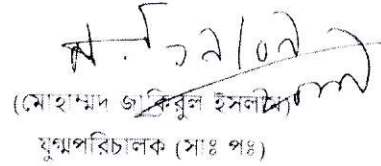 (মোহাম্মদ জাকিরুল ইসলাম)
যুগ্মপরিচালক (সাঃ পঃ)